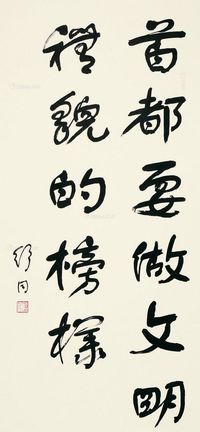 首都要做文明
礼貌的榜样
舒同